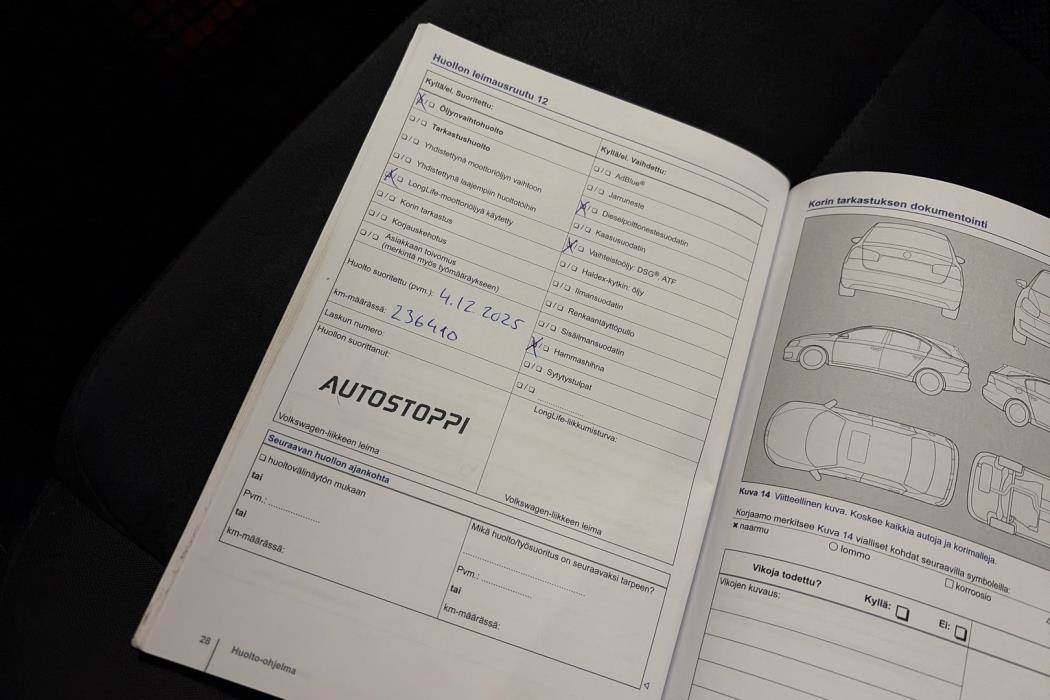 Huollon leimausruutu 12
Kyllä/ei. Suoritettu:
Öljynvaihtohuolto
Tarkastushuolto
Yhdistettynä moottoriöljyn vaihtoon
Yhdistettynä laajempiin huoltotöihin
LongLife-moottoriöljyä käytetty
Korin tarkastus
Korjauskehotus
Asiakkaan toivomus
(merkintä myös työmääräykseen)
Huolto suoritettu (pvm.): 4.12.2025
km-määrässä: 236410
Laskun numero:
Huollon suorittanut:
AUTOSTOPPI
Volkswagen-liikkeen leima
Kyllä/ei. Vaihdettu:
AdBlue®
Jarruneste
Dieselpolttonestesuodatin
Kaasusuodatin
Vaihteistoöljy: DSG®, ATF
Haldex-kytkin: öljy
Ilmansuodatin
Renkaantäyttöpullo
Sisäilmansuodatin
Hammashihna
Sytytystulpat
LongLife-liikkumisturva:
Volkswagen-liikkeen leima
Seuraavan huollon ajankohta
huoltovälinäytön mukaan
tai
Pvm.:
tai
km-määrässä:
Mikä huolto/työsuoritus on seuraavaksi tarpeen?
Pvm.:
tai
km-määrässä:
28 Huolto-ohjelma
Korin tarkastuksen dokumentointi
Kuva 14 Viitteellinen kuva. Koskee kaikkia autoja ja korimalleja.
Korjaamo merkitsee Kuva 14 vialliset kohdat seuraavilla symboleilla:
x naarmu
lommo
korroosio
Vikoja todettu? Kyllä: Ei:
Vikojen kuvaus: